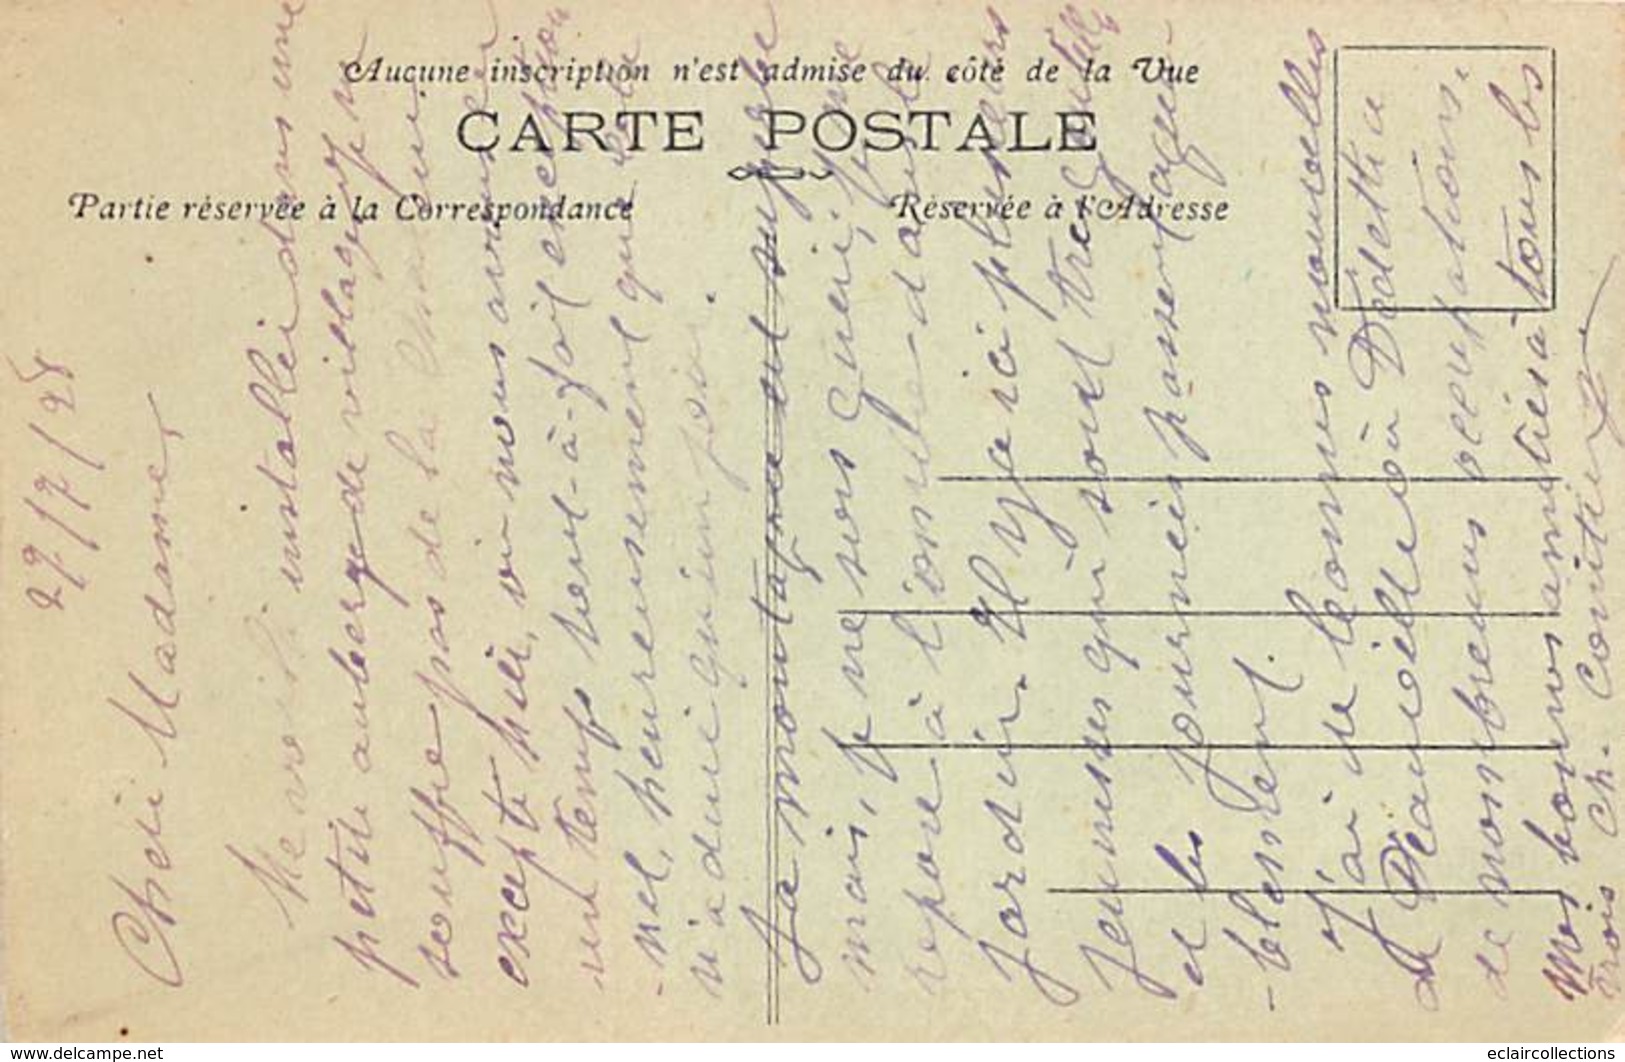 Aucune inscription n'est admise du côté de la Vue
CARTE POSTALE
Partie réservée à la Correspondance
Réservée à l'Adresse
29/7/28
Chère Madame,
Me voici installée dans une
petite auberge de village, je ne
souffre pas de la chaleur,
excepté hier, où nous avons eu
un temps tout-à-fait exception
-nel, heureusement que cela
n'a duré qu'un jour.
La montagne est superbe
mais, je ne suis guérie, je me
repose à l'ombre dans le
jardin. Il y a ici plusieurs
jeunesses qui sont très gentilles
et les journées passent agréa-
-blement.
J'ai de bonnes nouvelles
de Deauville où Odette a
de nombreuses occupations.
Mes bonnes amitiés à tous les
trois Ch.
www.delcampe.net
eclaircollections